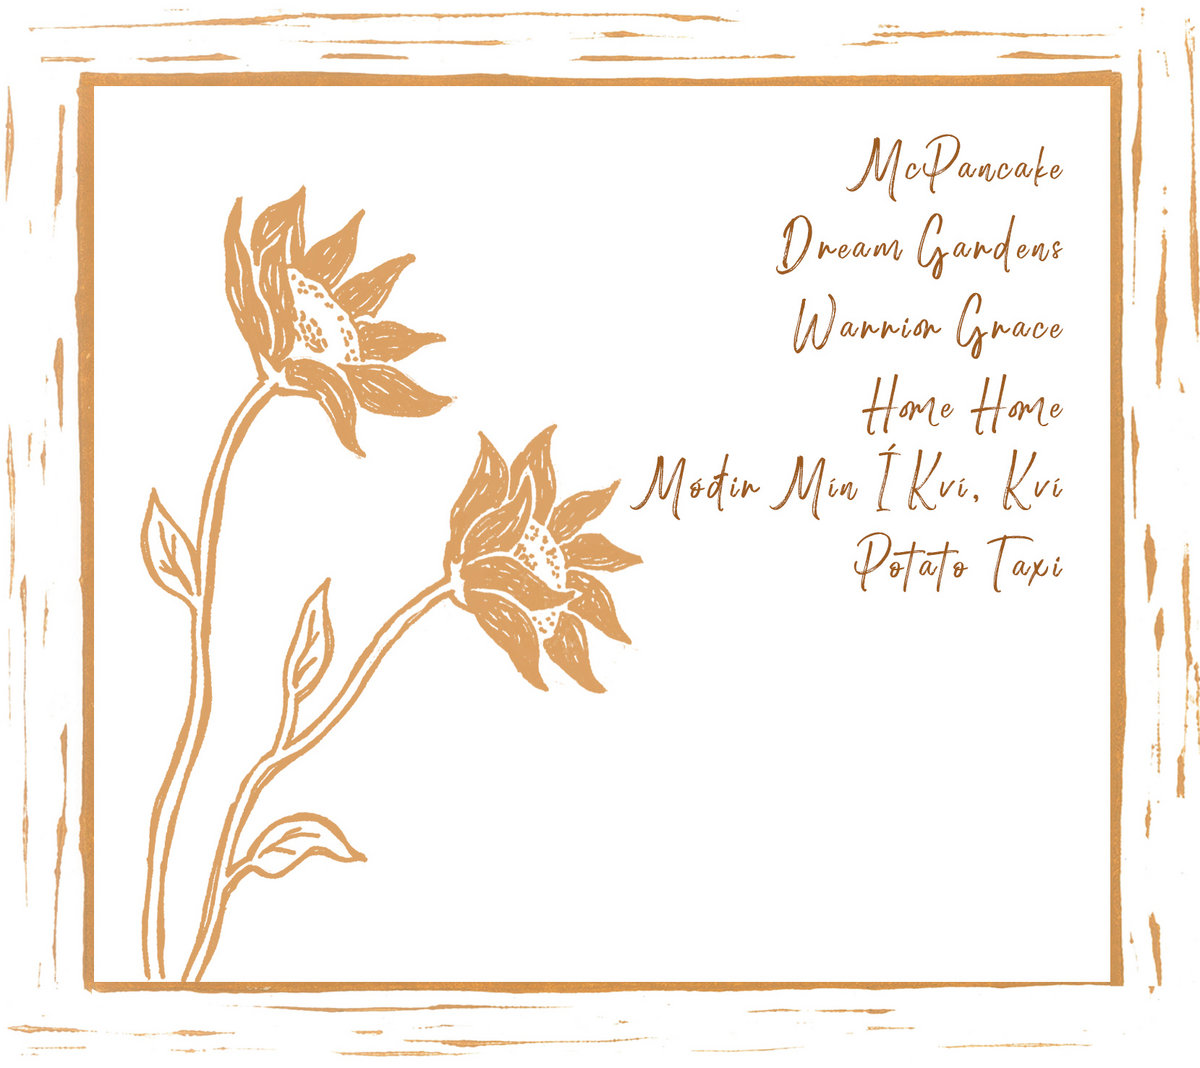 McPancake
Dream Gardens
Warrior Grace
Home Home
Móđir Mín Í Kví, Kví
Potato Taxi